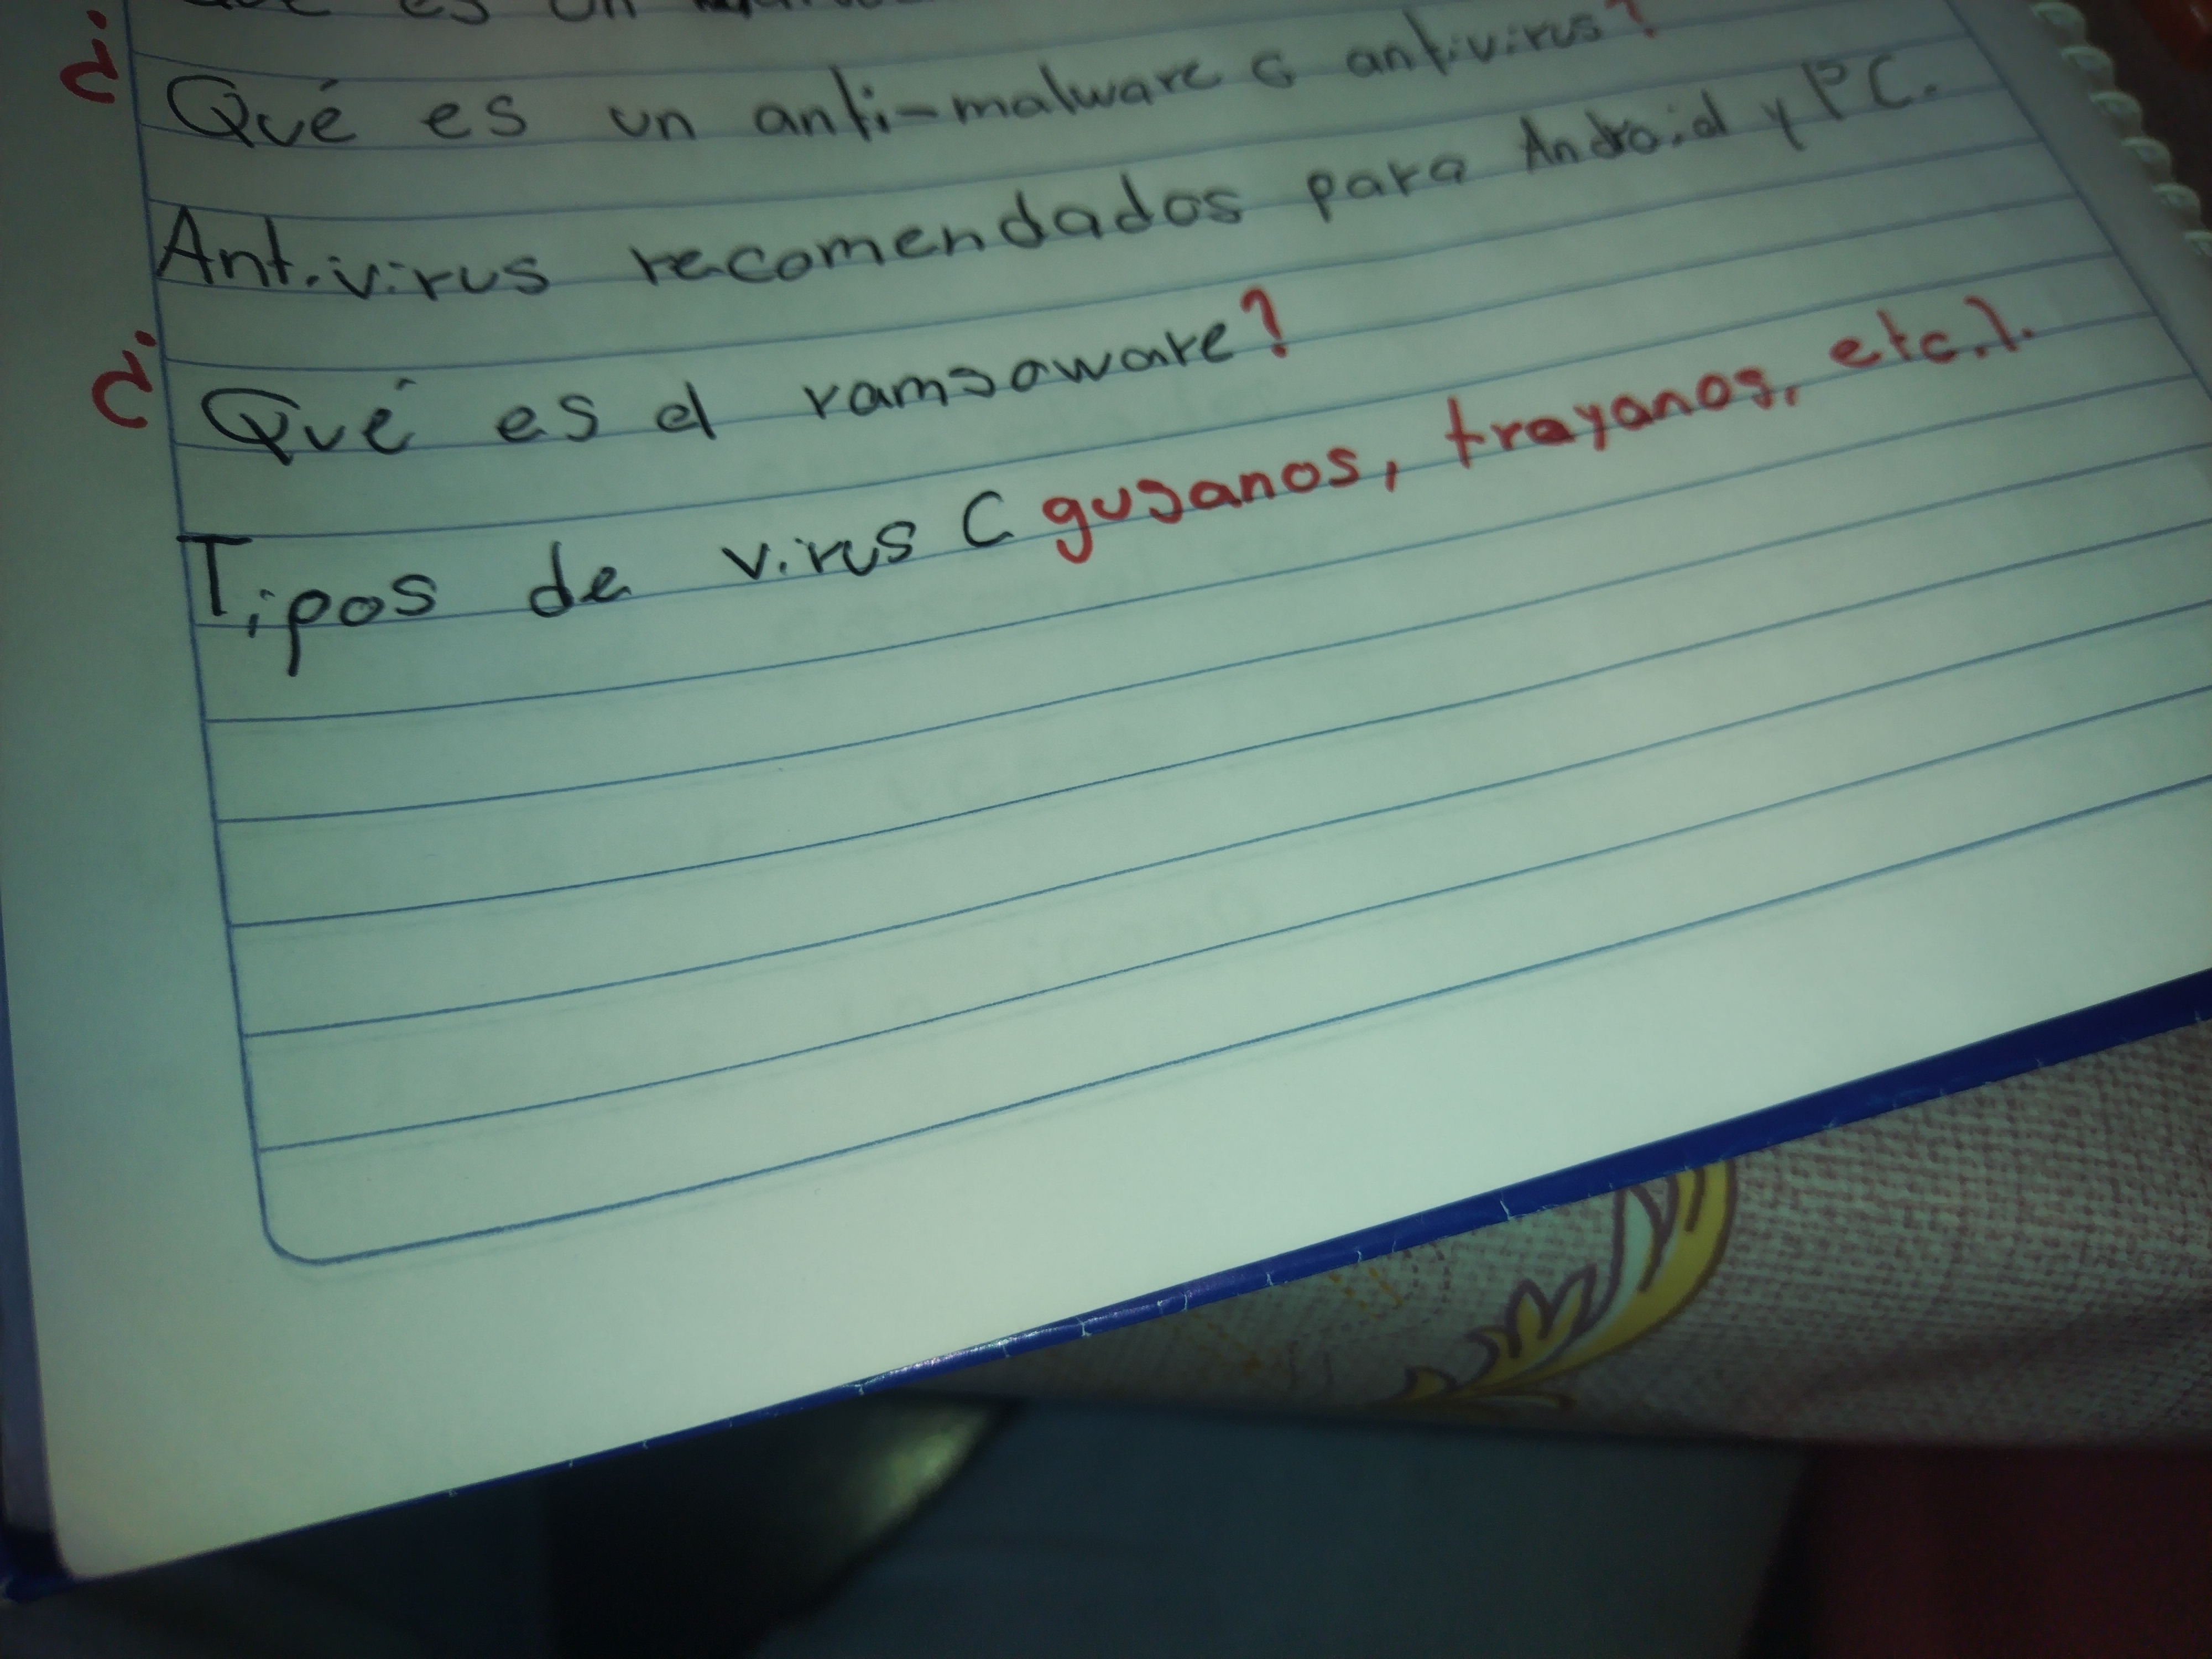 es un
¿Qué es un anti-malware o antivirus?
Antivirus recomendados para Android y PC.
¿Qué es el ramsoware?
Tipos de virus (gusanos, troyanos, etc.).